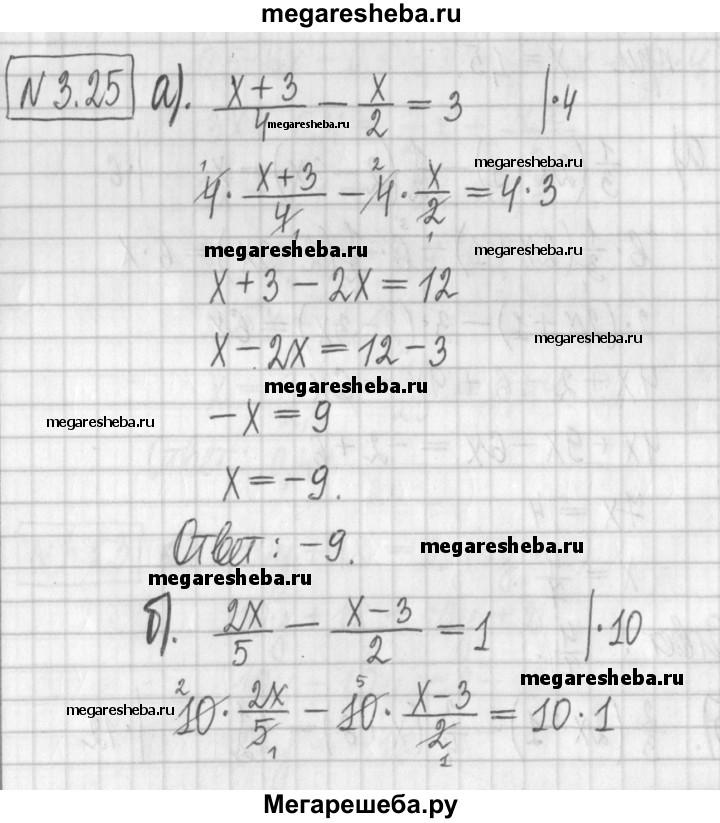 megaresheba.ru
N 3.25 а). (x+3)/4 − x/2 = 3 |·4
megaresheba.ru
megaresheba.ru
4 · (x+3)/4 − 4 · x/2 = 4 · 3
megaresheba.ru megaresheba.ru
x + 3 − 2x = 12
megaresheba.ru
x − 2x = 12 − 3
megaresheba.ru
megaresheba.ru
−x = 9
x = −9.
Ответ: −9.
megaresheba.ru
megaresheba.ru
б). 2x/5 − (x−3)/2 = 1 |·10
megaresheba.ru
megaresheba.ru
10 · 2x/5 − 10 · (x−3)/2 = 10 · 1
Мегарешеба.ру